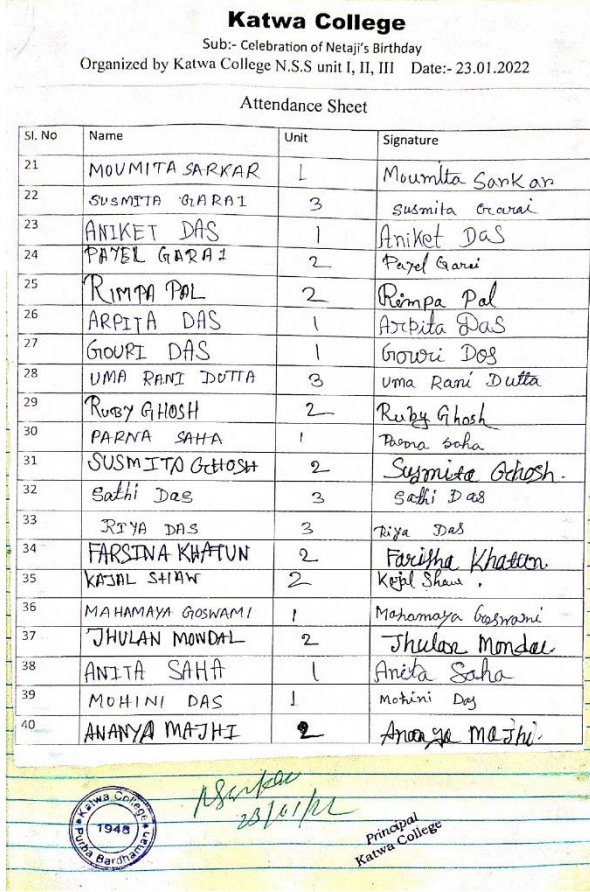 Katwa College
Sub:- Celebration of Netaji's Birthday
Organized by Katwa College N.S.S unit I, II, III Date:- 23.01.2022
Attendance Sheet
Sl. No Name Unit Signature
21 MOUMITA SARKAR 1 Moumita Sarkar
22 SUSMITA GARAI 3 Susmita Garai
23 ANIKET DAS 1 Aniket Das
24 PAYEL GARAI 2 Payel Garai
25 RIMPA PAL 2 Rimpa Pal
26 ARPITA DAS 1 Arpita Das
27 GOURI DAS 1 Gouri Das
28 UMA RANI DUTTA 3 Uma Rani Dutta
29 RUBY GHOSH 2 Ruby Ghosh
30 PARNA SAHA 1 Parna Saha
31 SUSMITA GHOSH 2 Susmita Ghosh.
32 Sathi Das 3 Sathi Das
33 RIYA DAS 3 Riya Das
34 FARSINA KHATUN 2 Khatun.
35 KAJAL SHAW 2 Kajal Shaw.
36 MAHAMAYA GOSWAMI 1 Mahamaya Goswami
37 JHULAN MONDAL 2 Jhulan Mondal.
38 ANITA SAHA 1 Anita Saha
39 MOHINI DAS 1 Mohini Das
40 ANANYA MAJHI 2 Ananya Majhi.
23/01/22
Katwa College
1948
Purba Bardhaman
Principal
Katwa College